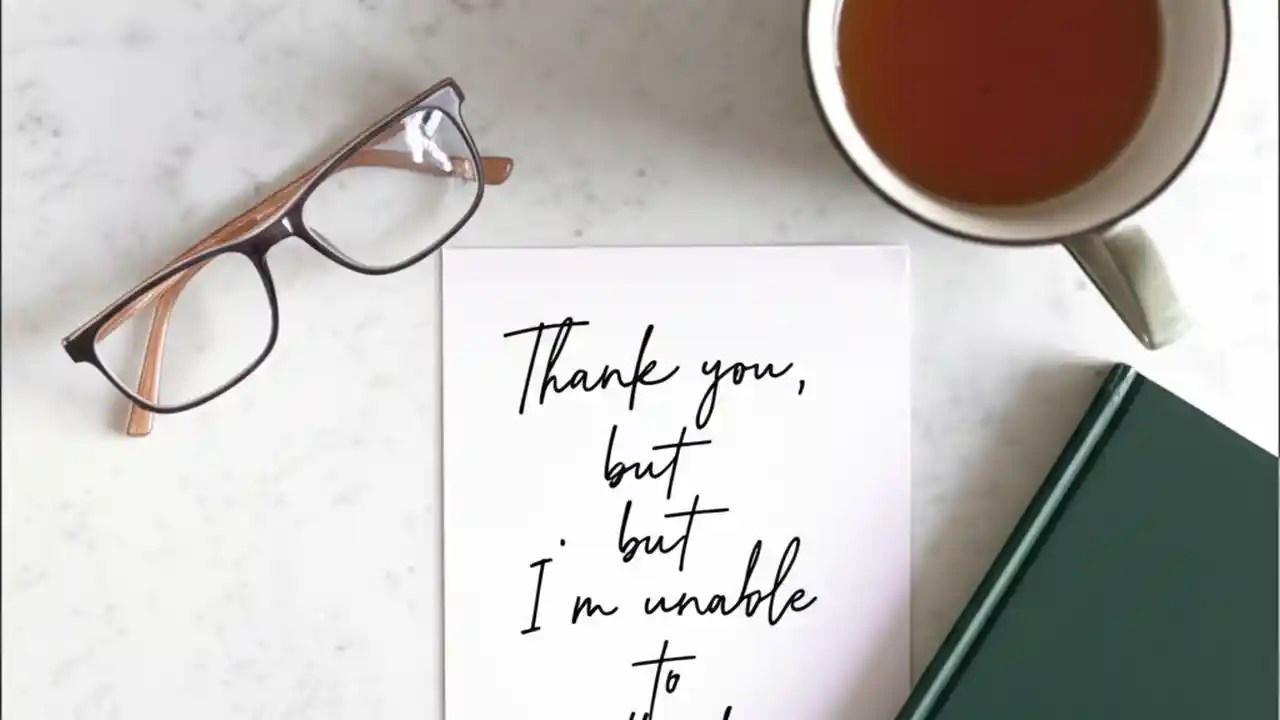 Thank you,
but
but
I'm unable
to